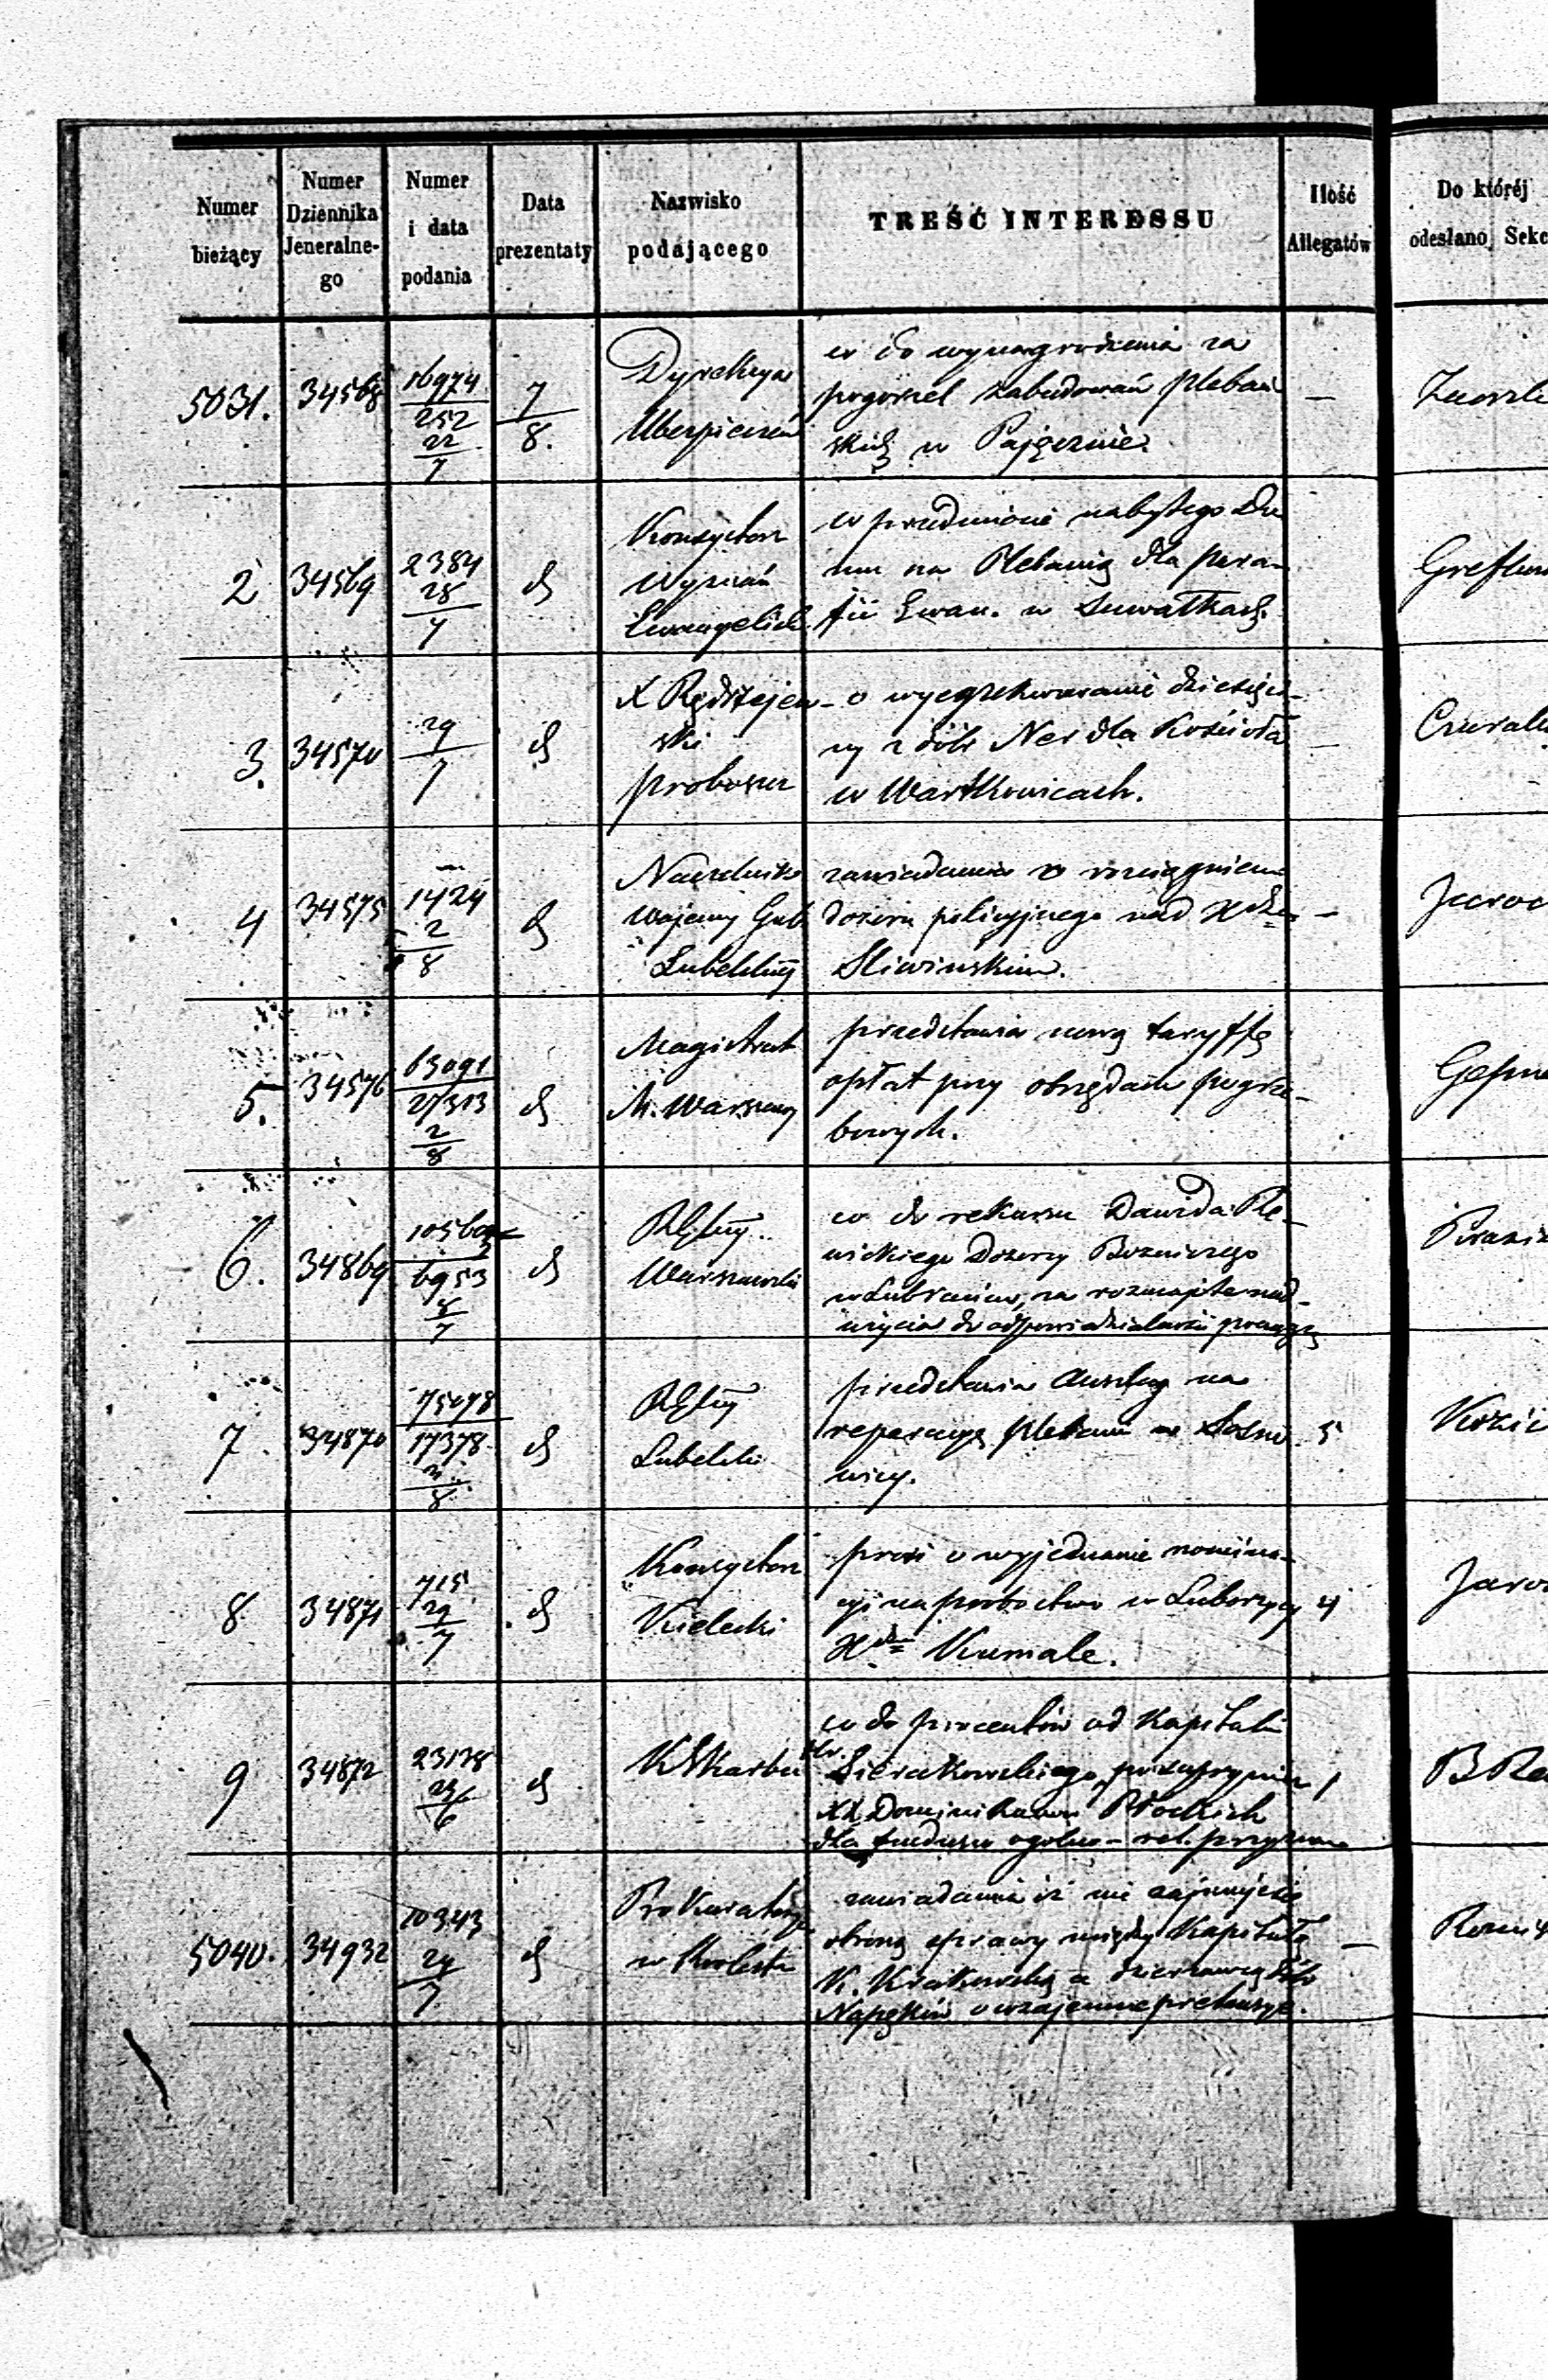 Numer bieżący
Numer Dziennika Jeneralne-go
Numer i data podania
Data prezentaty
Nazwisko podającego
TREŚĆ INTERESSU
Ilość Allegatów
Do któréj
odesłano Sekc
5031. 34568 16974
252
22
7
7
8.
Dyrekcya
Ubezpieczeń
co do wynagrodzenia za
pogorzel zabudowań plebań
skich w Pajęcznie.
—
2 34569 2384
28
7
d
Konsystorz
Wyznań
Ewangelick.
w przedmiocie nabytego Do
mu na Plebanią dla para-
fii Ewan. w Suwałkach.
3. 34570 29
7
d
X Rędrzejew-
ski
proboszcz
o wyegzekwowanie dziesięci-
ny z dóbr Ner dla Kościoła
w Wartkowicach.
—
4 34575 1424
2
8
d
Naczelnik
Wojenny Gub
Lubelskiej
zawiadamia o rozciągnieniu
dozoru policyjnego nad
Sliwinskim.
—
5. 34576 63091
27313
2
8
d
Magistrat
M. Warszawy
przedstawia nową taryffę
opłat przy obrzędach pogrze-
bowych.
6. 34869
6953
8
7
d
Warszawski
co do rekursu Dawida Ple-
wickiego Dozorcy Bożniczego
w Lubrańcu, za rozmajite nad-
użycia do odpowiedzialności
7. 34870 75078
17378
8
d
Lubelski
przedstawia anszlag na
reparacyę plebanii w Sosno
wicy.
5
8 34871 715
29
7
d
Konsystorz
Kielecki
prosi o wyjednanie nomina-
cyi na probostwo w Luborzycy
4
9 34872 23138
6
d
K Skarbu
co do procentów od Kapitału
Sierakowskiego,
XX Dominikanów Płockich
dla funduszu ogolno - rel.
1
5040. 34932 10343
29
7
d
Prokuratorya
w Królestw
zawiadamia iż nie zajmuje się
obroną sprawy między Kapitułą
K. Krakowską a dzierżawcą dóbr
Napęków o wzajemne pretensye.
—